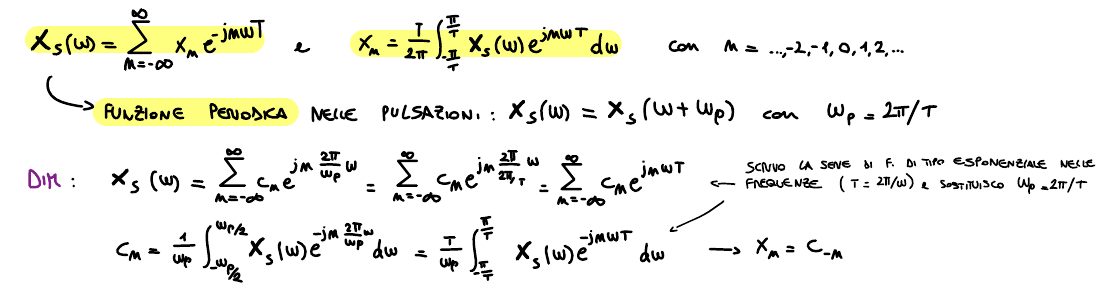 X_s(ω) = ∑_{n=-∞}^{∞} x_n e^{-jnωT} e x_n = T/2π ∫_{-π/T}^{π/T} X_s(ω) e^{jnωT} dω con n = ...,-2,-1,0,1,2,...
FUNZIONE PERIODICA NELLE PULSAZIONI: X_s(ω) = X_s(ω + ω_p) con ω_p = 2π/T
DIM: X_s(ω) = ∑_{n=-∞}^{∞} c_n e^{jn 2π/ω_p ω} = ∑_{n=-∞}^{∞} c_n e^{jn 2π/(2π/T) ω} = ∑_{n=-∞}^{∞} c_n e^{jnωT} ← SCRIVO LA SERIE DI F. DI TIPO ESPONENZIALE NELLE
FREQUENZE (T = 2π/ω) e SOSTITUISCO ω_p = 2π/T
c_n = 1/ω_p ∫_{-ω_p/2}^{ω_p/2} X_s(ω) e^{-jn 2π/ω_p ω} dω = T/ω_p ∫_{-π/T}^{π/T} X_s(ω) e^{-jnωT} dω → x_n = c_{-n}